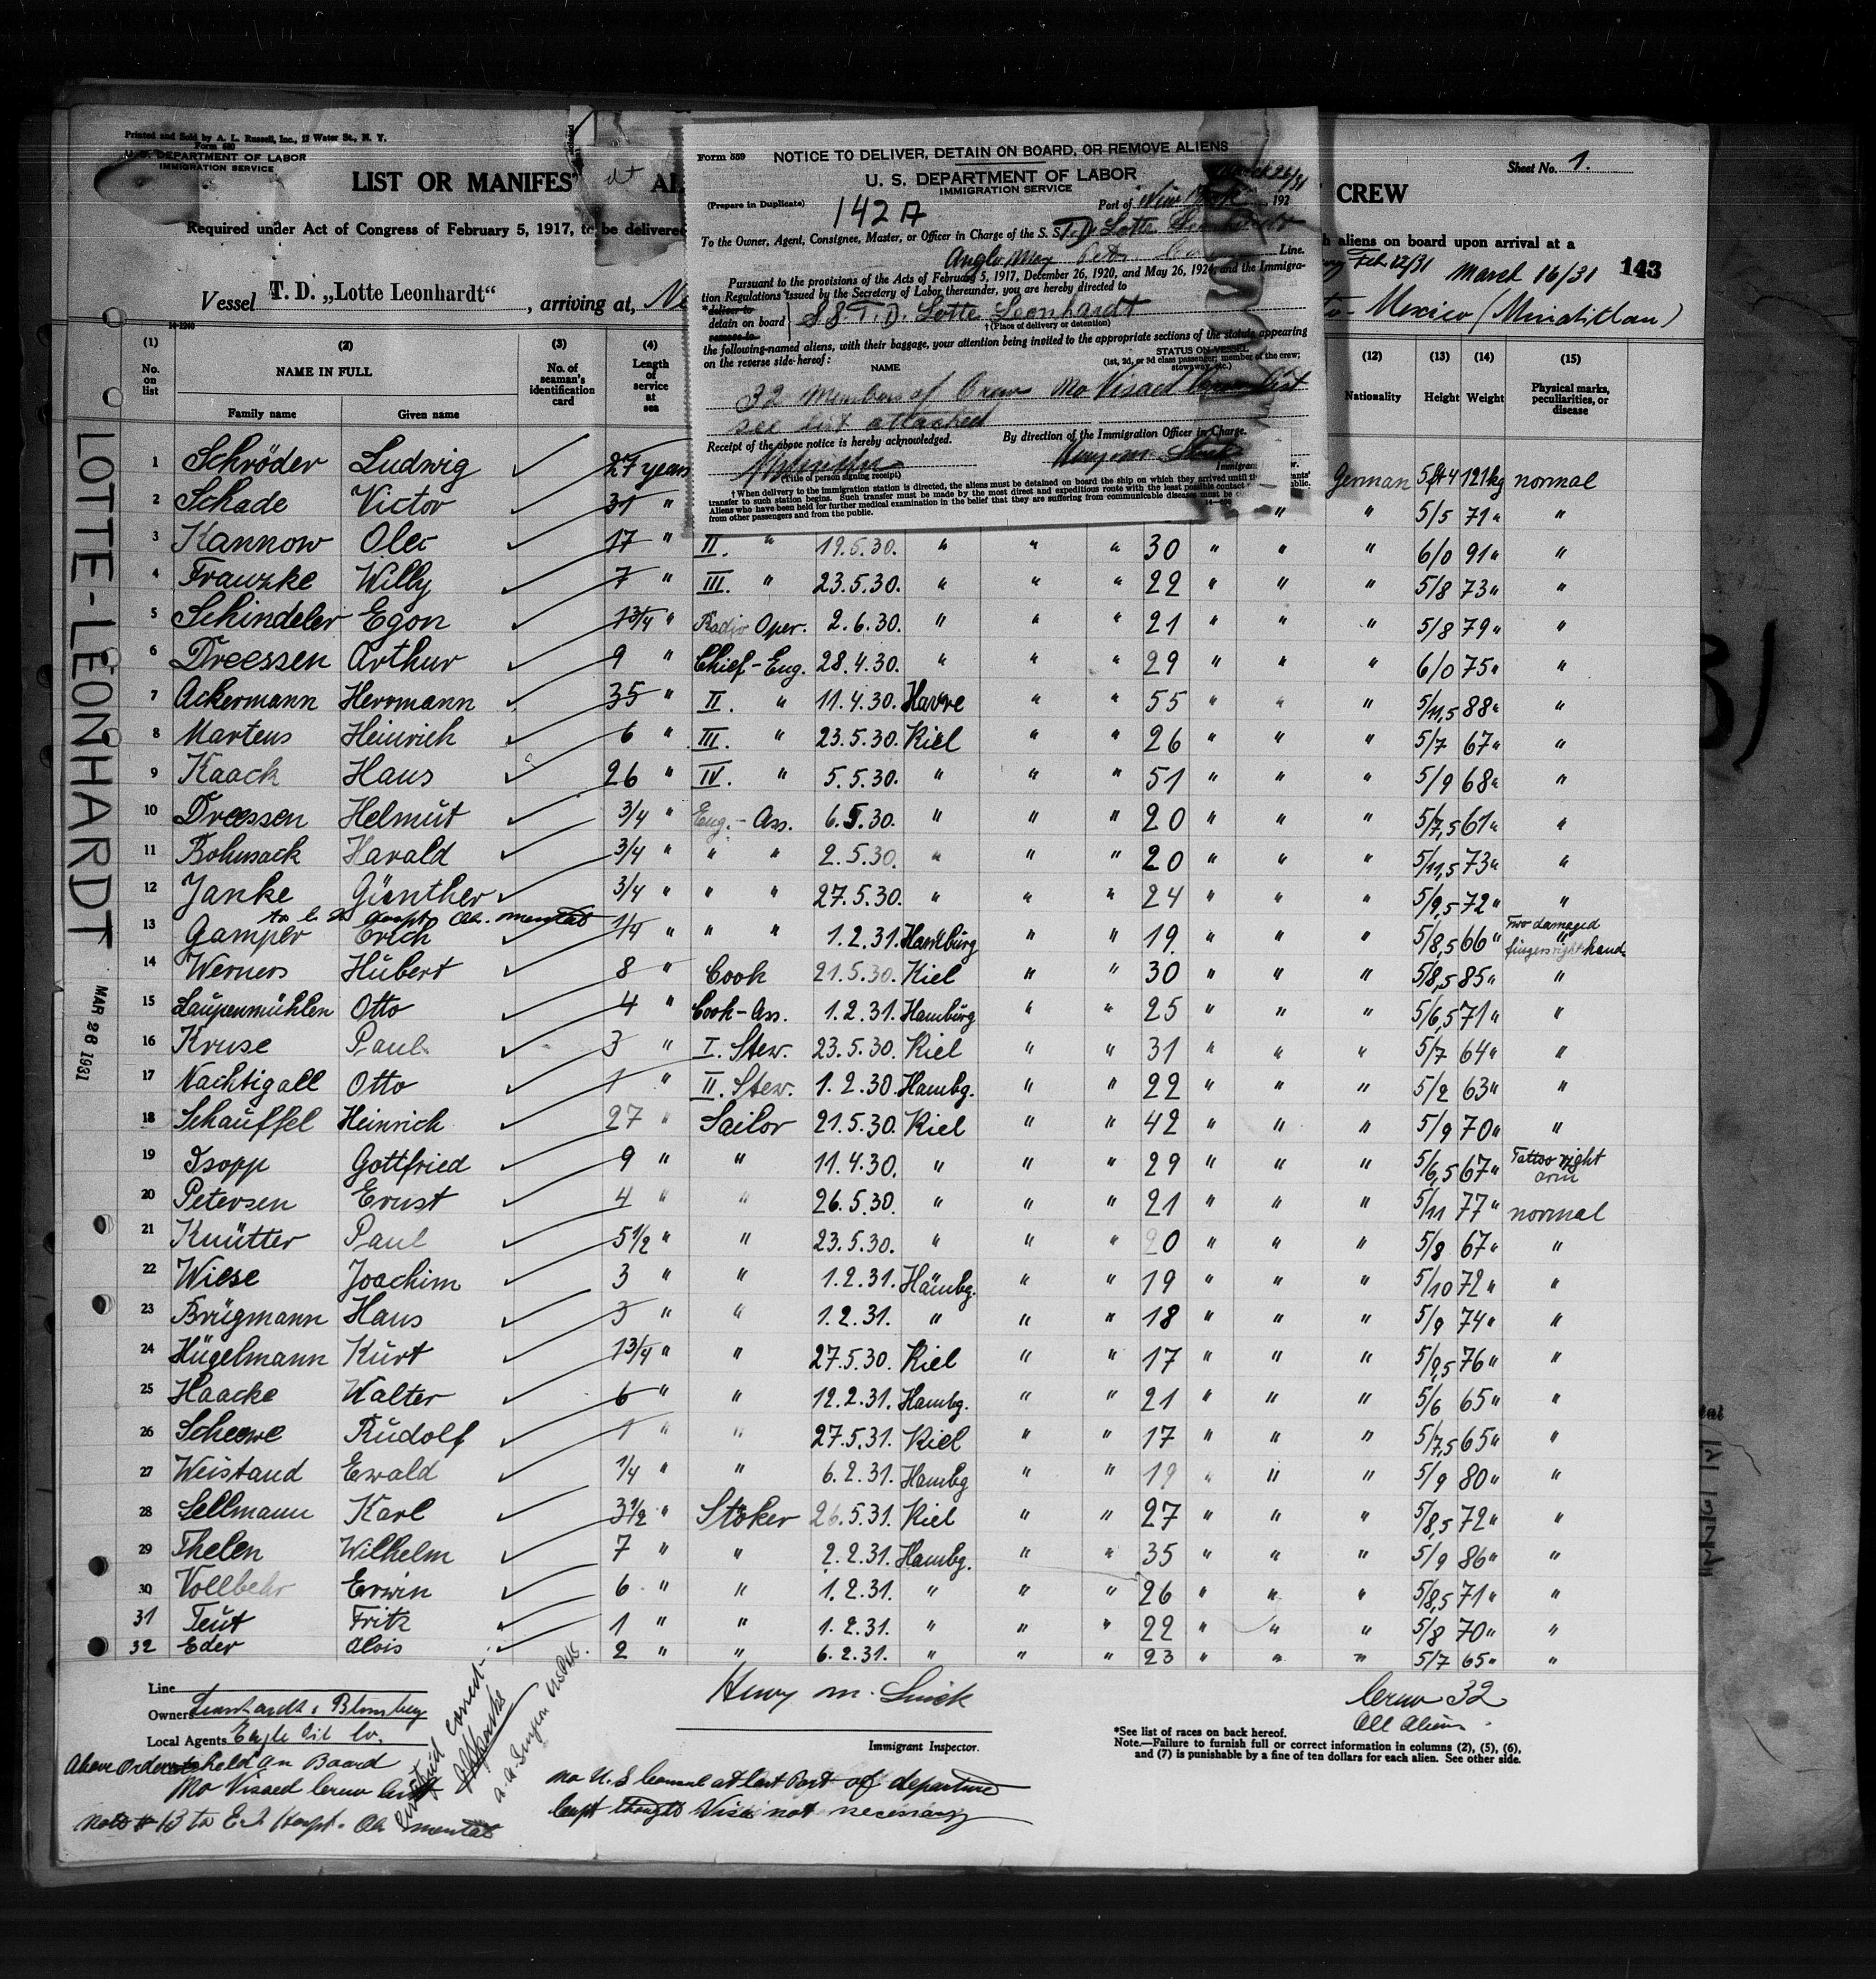 Printed and Sold by A. L. Russell, Inc., 12 Water St., N. Y.
Form 680
U. S. DEPARTMENT OF LABOR
IMMIGRATION SERVICE
LIST OR MANIFES
AL
CREW
Sheet No. 1.
Required under Act of Congress of February 5, 1917, to be delivered
aliens on board upon arrival at a
Feb 12/31 March 16/31 143
Vessel T. D. „Lotte Leonhardt“, arriving at,
Mexico (Minatitlan)
Form 559
NOTICE TO DELIVER, DETAIN ON BOARD, OR REMOVE ALIENS
U. S. DEPARTMENT OF LABOR
IMMIGRATION SERVICE
March 26/31
(Prepare in Duplicate) 142 A Port of New York, 192
To the Owner, Agent, Consignee, Master, or Officer in Charge of the S. S. T.D. Lotte Leonhardt
Anglo Mex Petr. Co Line.
Pursuant to the provisions of the Acts of February 5, 1917, December 26, 1920, and May 26, 1924, and the Immigra-
tion Regulations issued by the Secretary of Labor thereunder, you are hereby directed to
*deliver to
detain on board
remove to
SS T.D. Lotte Leonhardt
†(Place of delivery or detention)
the following-named aliens, with their baggage, your attention being invited to the appropriate sections of the statute appearing
on the reverse side hereof:
NAME
STATUS ON VESSEL
(1st, 2d, or 3d class passenger; member of the crew; stowaway, etc.)
32 Members of Crew No Visaed Crew List
see list attached
Receipt of the above notice is hereby acknowledged. By direction of the Immigration Officer in Charge.
Henry M.
(Title of person signing receipt)
Immigran
†When delivery to the immigration station is directed, the aliens must be detained on board the ship on which they arrived until
transfer to such station begins. Such transfer must be made by the most direct and expeditious route with the least possible contact
Aliens who have been held for further medical examination in the belief that they are suffering from communicable diseases must be
from other passengers and from the public.
14-1240
(1) (2) (3) (4) (12) (13) (14) (15)
No. on list NAME IN FULL No. of seaman's identification card Length of service at sea Nationality Height Weight Physical marks, peculiarities, or disease
Family name Given name
1 Schröder Ludwig 27 years German 5ft4 121kg normal
2 Schade Victor 31 " " " 5/5 71 " "
3 Kannow 17 " II. " 19.5.30. " " " 30 " " " 6/0 91 " "
4 Franzke Willy 7 " III. " 23.5.30. " " " 22 " " " 5/8 73 " "
5 Schindeler Egon 1 3/4 " Radio Oper. 2.6.30. " " " 21 " " " 5/8 79 " "
6 Dreessen Arthur 9 " Chief-Eng. 28.4.30. " " " 29 " " " 6/0 75 " "
7 Ackermann Herrmann 35 " II. " 11.4.30. Havre " " 55 " " " 5/11,5 88 " "
8 Martens Heinrich 6 " III. " 23.5.30. Kiel " " 26 " " " 5/7 67 " "
9 Kaack Hans 26 " IV. " 5.5.30. " " " 51 " " " 5/9 68 " "
10 Dreessen Helmut 3/4 " Eng.-Ass. 6.5.30. " " " 20 " " " 5/7,5 61 " "
11 Bohnsack Harald 3/4 " " " 2.5.30. " " " 20 " " " 5/11,5 73 " "
12 Janke Günther 3/4 " " " 27.5.30. " " " 24 " " " 5/9,5 72 " "
13 Gamper Erich 1/4 " " " 1.2.31. Hamburg " " 19. " " " 5/8,5 66 " Two damaged fingers right hand
14 Werners Hubert 8 " Cook 21.5.30. Kiel " " 30 " " " 5/8,5 85 " "
15 Laupenmühlen Otto 4 " Cook-Ass. 1.2.31. Hamburg " " 25 " " " 5/6,5 71 " "
16 Kruse Paul 3 " I. Stew. 23.5.30. Kiel " " 31 " " " 5/7 64 " "
17 Nachtigall Otto 1 " II. Stew. 1.2.30 Hambg. " " 22 " " " 5/2 63 " "
18 Schauffel Heinrich 27 " Sailor 21.5.30. Kiel " " 42 " " " 5/9 70 " "
19 Isopp Gottfried 9 " " 11.4.30. " " " 29 " " " 5/6,5 67 " Tattoo right arm
20 Petersen Ernst 4 " " 26.5.30. " " " 21 " " " 5/11 77 " normal
21 Knütter Paul 5 1/2 " " 23.5.30. " " " 20 " " " 5/8 67 " "
22 Wiese Joachim 3 " " 1.2.31. Hambg. " " 19 " " " 5/10 72 " "
23 Brügmann Hans 3 " " 1.2.31. " " " 18 " " " 5/9 74 " "
24 Hügelmann Kurt 1 3/4 " " 27.5.30. Kiel " " 17 " " " 5/9,5 76 " "
25 Haacke Walter 6 " " 12.2.31. Hambg. " " 21 " " " 5/6 65 " "
26 Scheewe Rudolf 1 " " 27.5.31. Kiel " " 17 " " " 5/7,5 65 " "
27 Weistand Ewald 1/4 " " 6.2.31. Hambg " " 19 " " " 5/9 80 " "
28 Sellmann Karl 3 1/2 " Stoker 26.5.31. Kiel " " 27 " " " 5/8,5 72 " "
29 Thelen Wilhelm 7 " " 2.2.31. Hambg. " " 35 " " " 5/9 86 " "
30 Vollbehr Erwin 6 " " 1.2.31. " " " 26 " " " 5/8,5 71 " "
31 Teut Fritz 1 " " 1.2.31. " " " 22 " " " 5/8 70 " "
32 Eder Alois 2 " " 6.2.31. " " " 23 " " " 5/7 65 " "
LOTTE-LEONHARDT
MAR 26 1931
Line
Owners Leonhardt & Blumberg
Local Agents Eagle Oil Co.
Above Ordered held on Board
No Visaed Crew List
Note # 13 to E.I. Hospt. Obs mental
Henry M.
Immigrant Inspector.
No U.S Consul at last Port of departure
Capt thought Visa not necessary
*See list of races on back hereof.
Note.—Failure to furnish full or correct information in columns (2), (5), (6),
and (7) is punishable by a fine of ten dollars for each alien. See other side.
Crew 32
All Aliens.